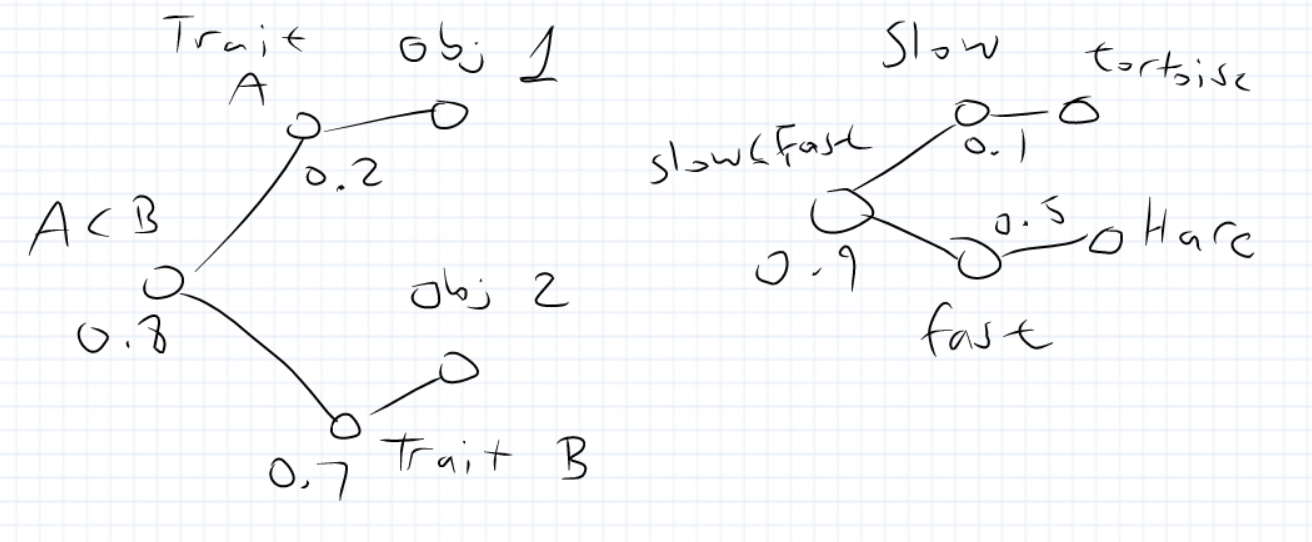 Trait
A
obj 1
0.2
A < B
0.8
obj 2
0.7
Trait B
Slow
tortoise
0.1
slow < Fast
0.9
0.5
Hare
fast